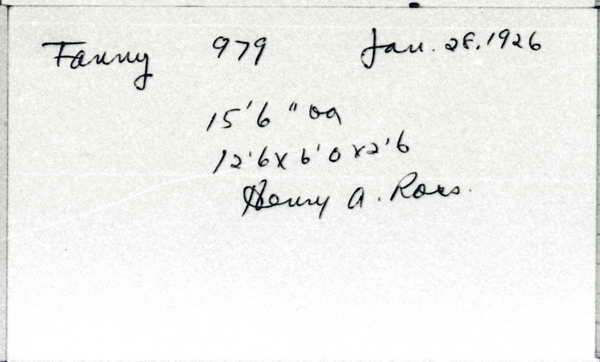 Fanny 979 Jan. 28, 1926
15'6" oa
12'6 x 6'0 x 2'6
Henry A. Ross.